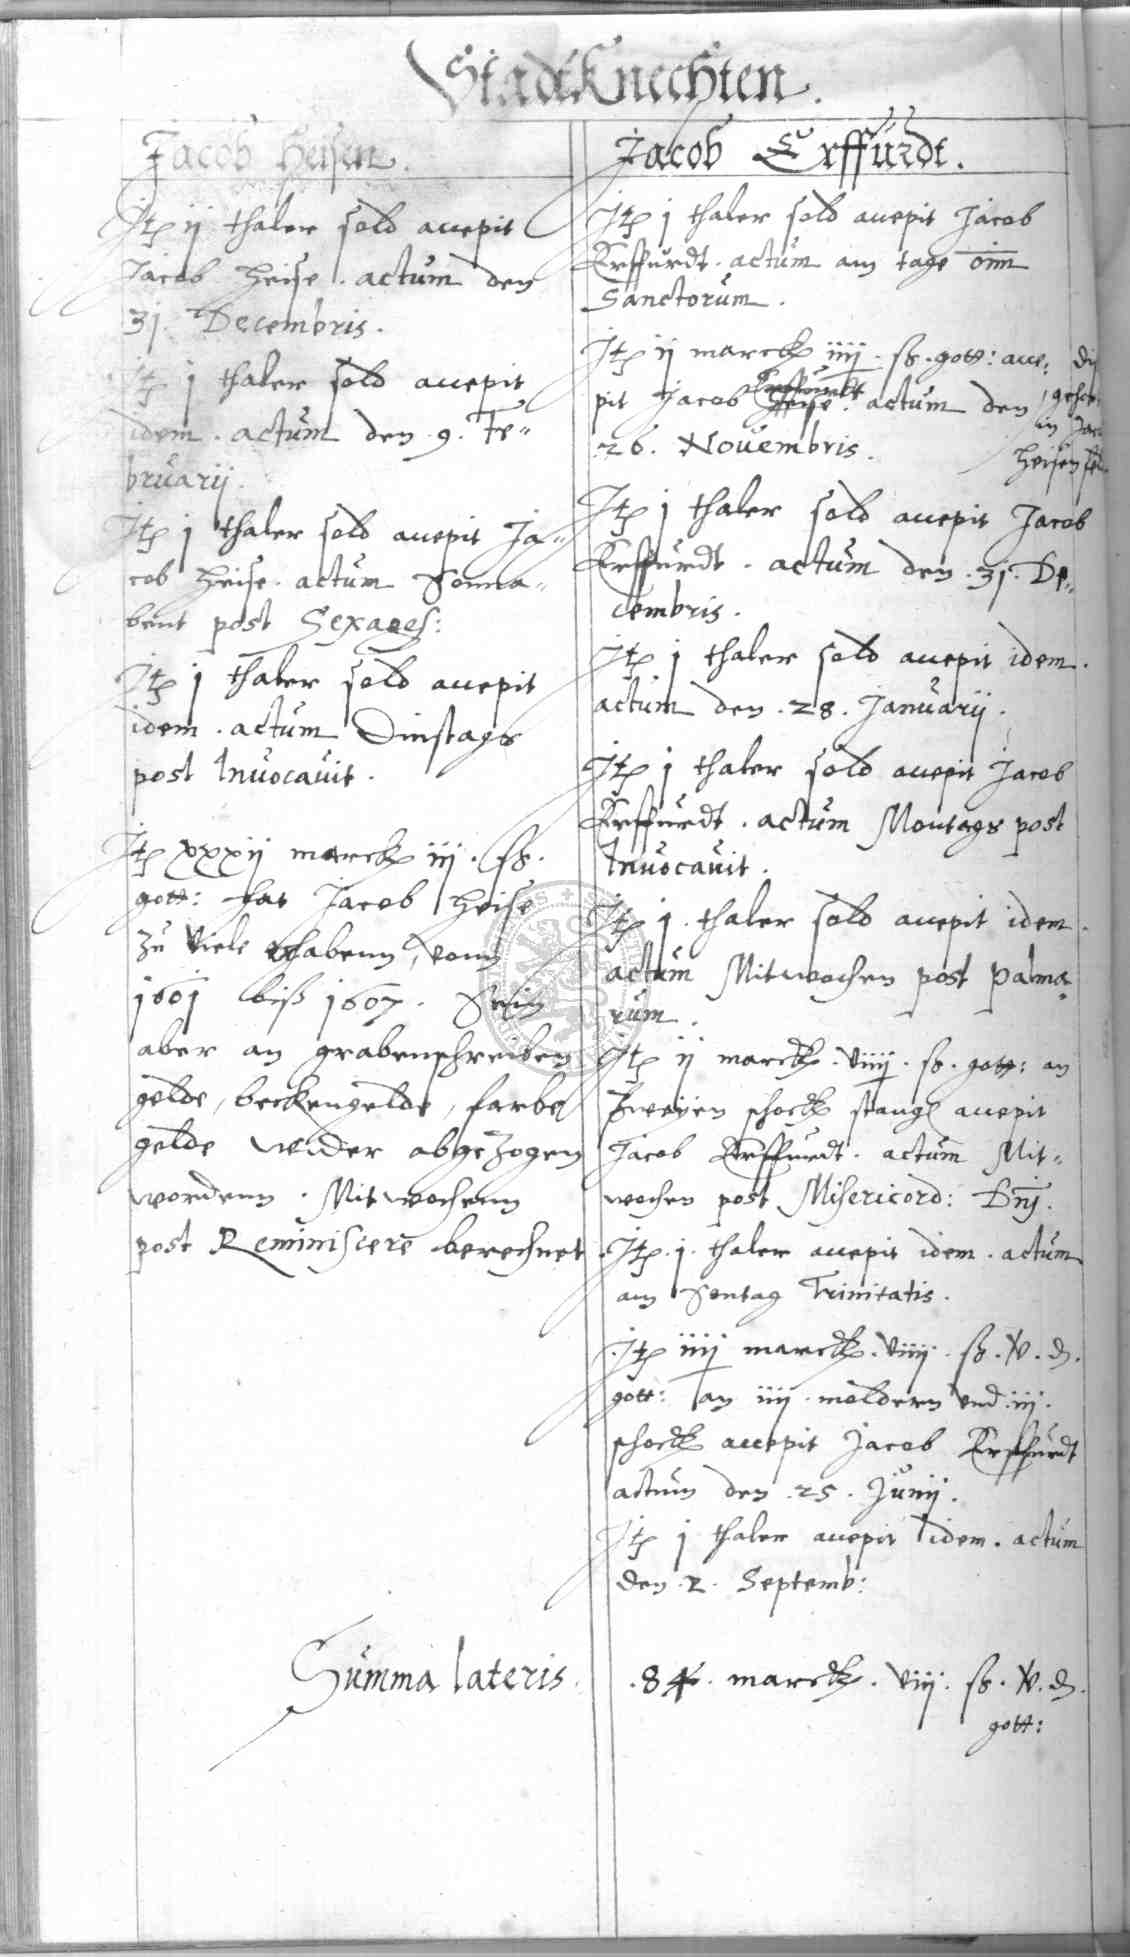 StadtKnechten.
Jacob Heisen.
Jtem ij thaler sold accepit
Jacob Heise. actum den
31. Decembris.
Jtem j thaler sold accepit
idem. actum den. 9. Fe„
bruarij.
Jtem j thaler sold accepit Ja„
cob Heise. actum Sonna„
bent post Sexages:
Jtem j thaler sold accepit
idem. actum Dinstags
post Inuocauit.
Jtem xxxij marck iij. ß.
gott: hat Jacob Heise
zu viele erhabenn, vonn
1601 biß 1607. Sein
aber an grabenschreiben
gelde, beckengelde, farbe
gelde wider abgezogen
wordenn. Mitwochenn
post Reminiscere berechnet
Jacob Erffurdt.
Jtem j thaler sold accepit Jacob
Erffurdt. actum am tage oim
Sanctorum.
Jtem ij marck iiij. ß. gott: acce:
pit Jacob Heise Erffurdt. actum den
26. Nouembris.
gehor
in Jac
Heisen
Jtem j thaler sold accepit Jacob
Erffurdt. actum den. 31. De„
cembris.
Jtem j thaler sold accepit idem.
actum den. 28. Januarij.
Jtem j thaler sold accepit Jacob
Erffurdt. actum Montags post
Inuocauit.
Jtem j. thaler sold accepit idem.
actum Mitwochen post Palma„
rum.
Jtem ij marck. viiij. ß. gott: an
Zweyen schock stang accepit
Jacob Erffurdt. actum Mit„
wochen post Misericord: Dnj.
Jtem. j. thaler accepit idem. actum
am Sontag Trinitatis.
Jtem iiij marck. viiij. ß. v. d.
gott: an iiij. moldern vnd. iij.
schock accepit Jacob Erffurdt
actum den. 25. Junij.
Jtem j thaler accepit idem. actum
den. 2. Septemb:
Summa lateris. .84. marck. viij. ß. v. d.
gott: